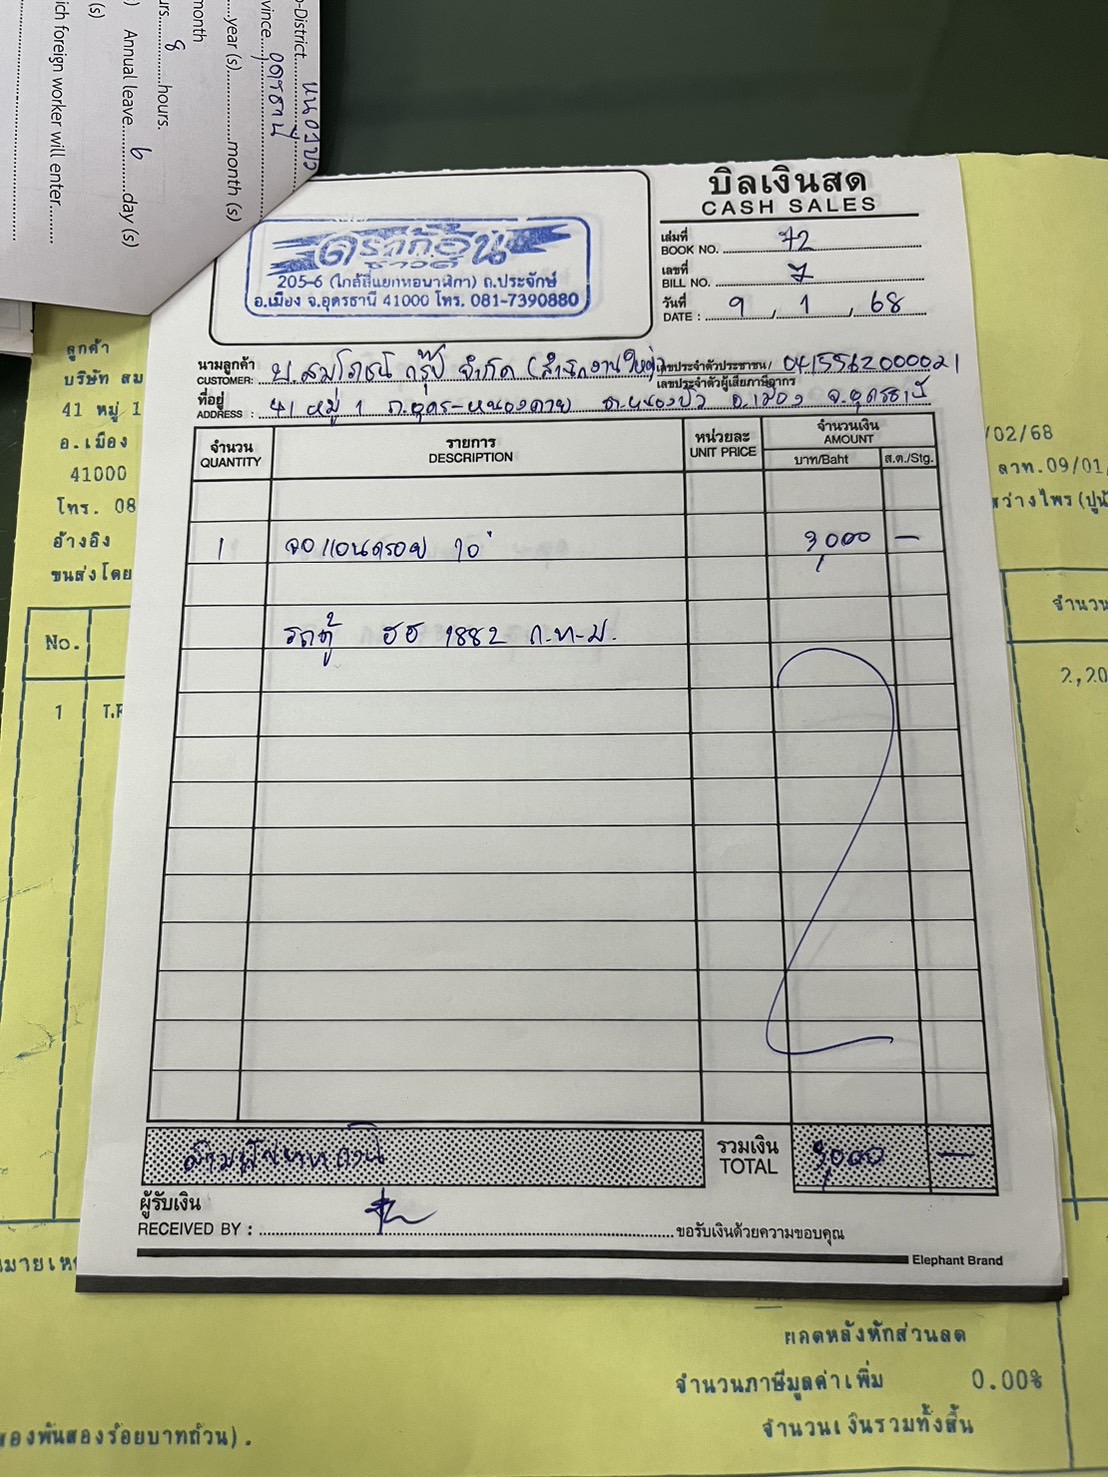 o-District.... หนองบัว
vince.... อุดรธานี
....year (s)............month (s)
month
urs....8....hours.
) Annual leave....6....day (s)
(s)
ich foreign worker will enter......
บิลเงินสด
CASH SALES
เล่มที่
BOOK NO. 72
เลขที่
BILL NO. 7
วันที่
DATE : 9 / 1 / 68
ดราก้อน
ซาวด์
205-6 (ใกล้สี่แยกหอนาฬิกา) ถ.ประจักษ์
อ.เมือง จ.อุดรธานี 41000 โทร. 081-7390880
นามลูกค้า
CUSTOMER: บ.สมโภชน์ กรุ๊ป จำกัด (สำนักงานใหญ่) เลขประจำตัวประชาชน/ 0415562000021
เลขประจำตัวผู้เสียภาษีอากร
ที่อยู่
ADDRESS : 41 หมู่ 1 ถ.อุดร-หนองคาย ต.หนองบัว อ.เมือง จ.อุดรธานี
จำนวน รายการ หน่วยละ จำนวนเงิน
QUANTITY DESCRIPTION UNIT PRICE AMOUNT
บาท/Baht ส.ต./Stg.
1 จอแอนดรอย 10" 3,000 —
รถตู้ ฮฮ 1882 ก.ท.ม.
สามพันบาทถ้วน รวมเงิน 3,000 —
TOTAL
ผู้รับเงิน
RECEIVED BY : ขอรับเงินด้วยความขอบคุณ
Elephant Brand
ลูกค้า
บริษัท สม
41 หมู่ 1
อ.เมือง
41000
โทร. 08
อ้างอิง
ขนส่งโดย
/02/68
ลาท.09/01/
สว่างไพร(ปูน
No. จำนวน
1 T.F 2,20
มายเหตุ
ยอดหลังหักส่วนลด
จำนวนภาษีมูลค่าเพิ่ม 0.00%
จำนวนเงินรวมทั้งสิ้น
สองพันสองร้อยบาทถ้วน).